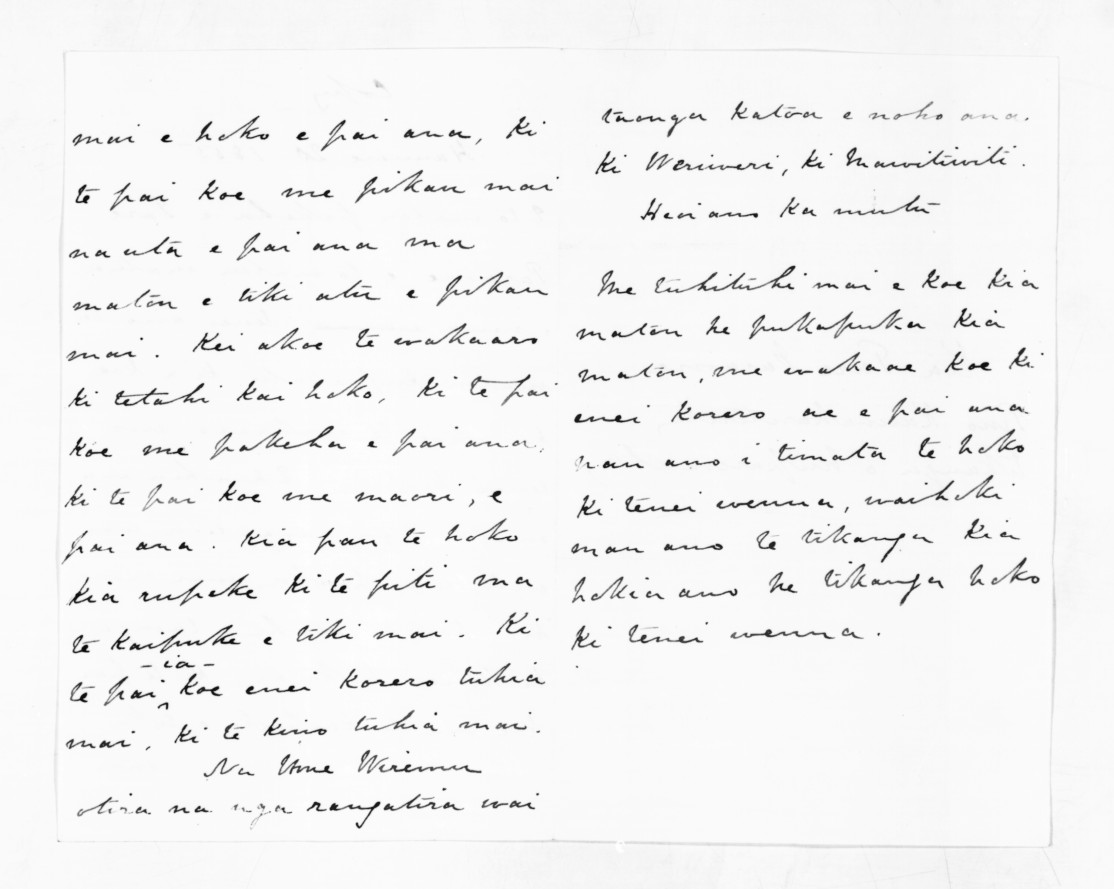 mai e hoko e pai ana, Ki
te pai koe me pikau mai
na uta e pai ana ma
matou e tiki atu e pikau
mai. Kei akoe te wakaaro
ki tetahi kai hoko, Ki te pai
koe me pakeha e pai ana,
ki te pai koe me maori, e
pai ana. Kia pau te hoko
kia rupeke ki te piti ma
te kaipuke e tiki mai. Ki
-ia-
te pai koe enei korero tuhia
mai, Ki te kino tuhia mai.
Na Wiremu
otira na nga rangatira wai
taonga katoa e noho ana.
Ki Weriweri, ki Mawitiwiti.
Heoi ano ka mutu
Me tuhituhi mai e koe kia
matou he pukapuka kia
matou, me wakaae koe ki
enei korero ae e pai ana
nau ano i timata te hoko
ki tenei wenua, waihoki
mau ano te tikanga kia
hokia ano he tikanga hoko
ki tenei wenua.